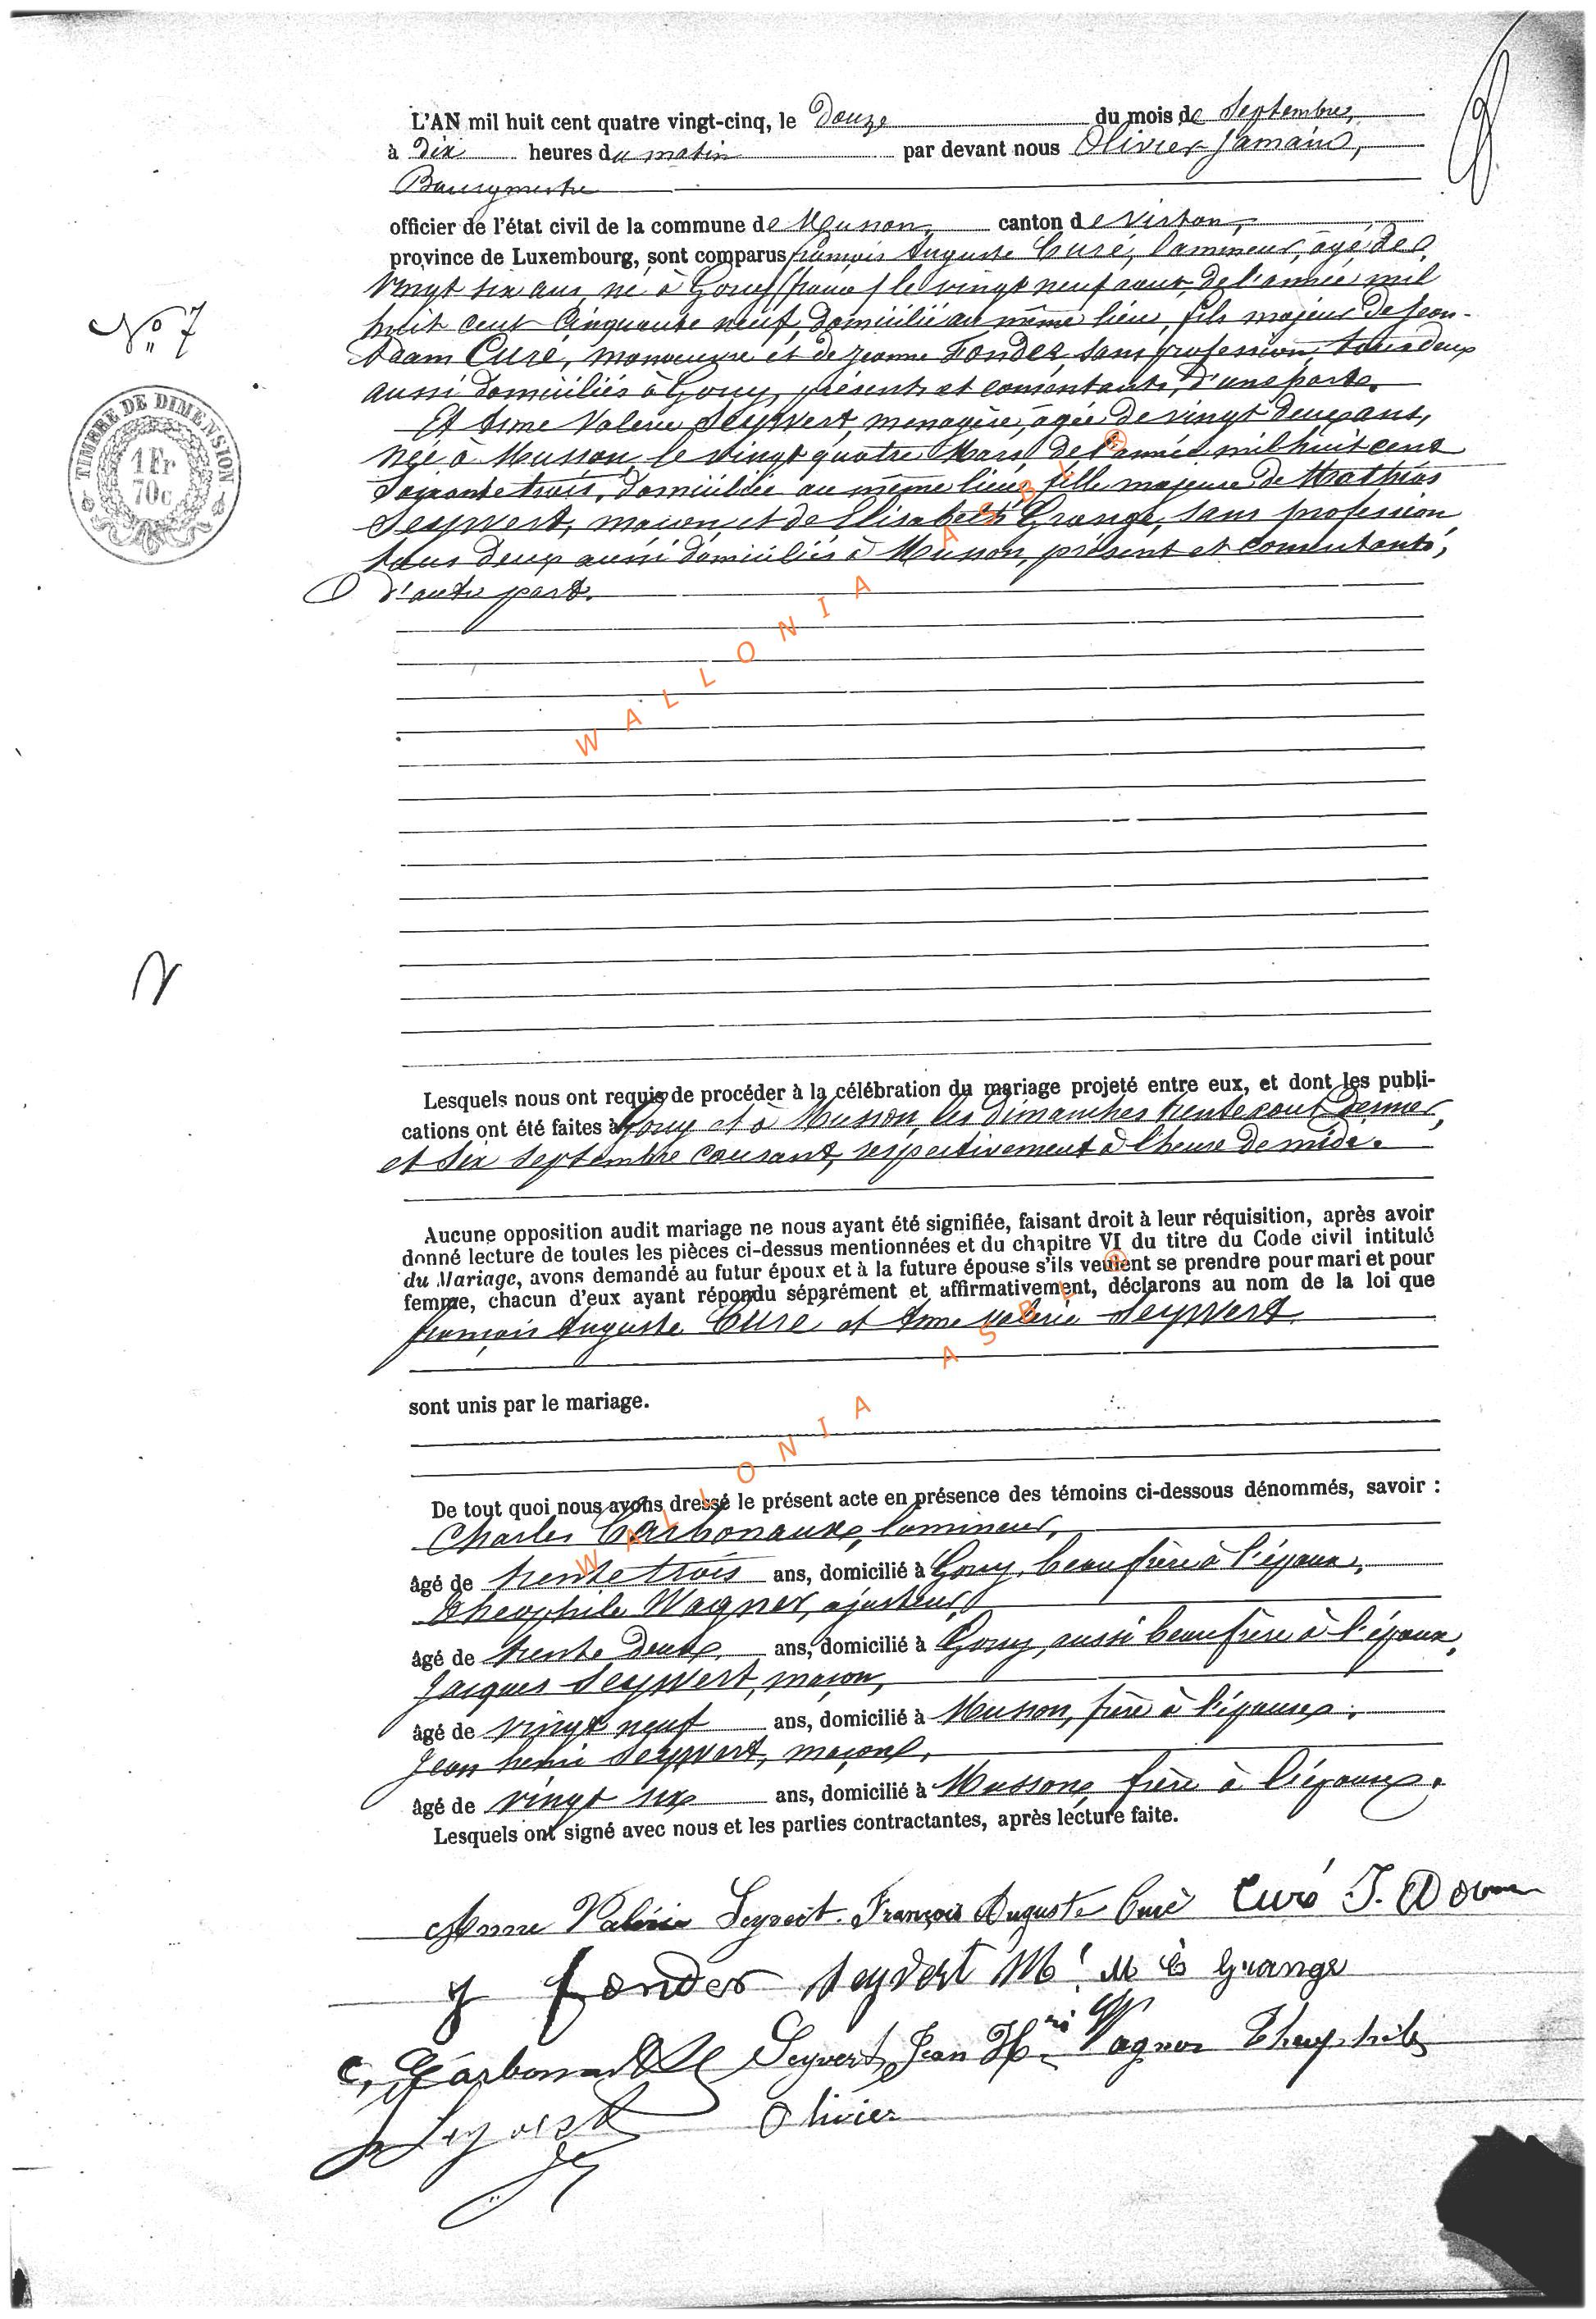 L'AN mil huit cent quatre vingt-cinq, le Douze du mois de Septembre,
à Dix heures du matin par devant nous Olivier Jamain,
Bourgmestre
officier de l'état civil de la commune de Musson, canton de Virton,
province de Luxembourg, sont comparus françois Auguste Curé, lamineur, âgé de
Vingt six ans, né à Gouy (france) le vingt neuf aout de l'année mil
huit cent Cinquante neuf, domicilié au même lieu, fils majeur de Jean-
No 7
Adam Curé, manoeuvre et de Jeanne Fonder, sans profession, tous deux
aussi domiciliés à Gouy, présents et consentants, d'une part.
Et Anne Valérie Seyvert, menagère, agée de vingt deux ans,
TIMBRE DE DIMENSION
1 Fr
70c
Née à Musson, le vingt quatre Mars de l'année mil huit cent
Soixante trois, domiciliée au même lieu, fille majeure de Mathias
Seyvert, maçon, et de Elisabeth Grange, sans profession
tous deux aussi domiciliés à Musson, présent et consentants,
d'autre part.
WALLONIA ASBL ®
Lesquels nous ont requis de procéder à la célébration du mariage projeté entre eux, et dont les publi-
cations ont été faites à Gouy et à Musson, les dimanches trente aout dernier,
et six Septembre courant, respectivement à l'heure de midi.
Aucune opposition audit mariage ne nous ayant été signifiée, faisant droit à leur réquisition, après avoir
donné lecture de toutes les pièces ci-dessus mentionnées et du chapitre VI du titre du Code civil intitulé
du Mariage, avons demandé au futur époux et à la future épouse s'ils veulent se prendre pour mari et pour
femme, chacun d'eux ayant répondu séparément et affirmativement, déclarons au nom de la loi que
françois Auguste Curé et Anne Valérie Seyvert
sont unis par le mariage.
WALLONIA ASBL ®
De tout quoi nous avons dressé le présent acte en présence des témoins ci-dessous dénommés, savoir :
Charles Carbonaux, lamineur,
âgé de trente trois ans, domicilié à Gouy, beau frère à l'époux,
Théophile Wagner, ajusteur,
âgé de trente deux ans, domicilié à Gouy, aussi beau frère à l'époux,
Jacques Seyvert, maçon,
âgé de vingt neuf ans, domicilié à Musson, frère à l'épouse,
Jean henri Seyvert, maçon,
âgé de vingt six ans, domicilié à Musson, frère à l'épouse.
Lesquels ont signé avec nous et les parties contractantes, après lecture faite.
Anne Valérie Seyvert. François Auguste Curé Curé J.
J fonder Seyvert Grange
C, Carbonaux Seyvert Jean Hri Wagner Theophile
Seyvert Olivier